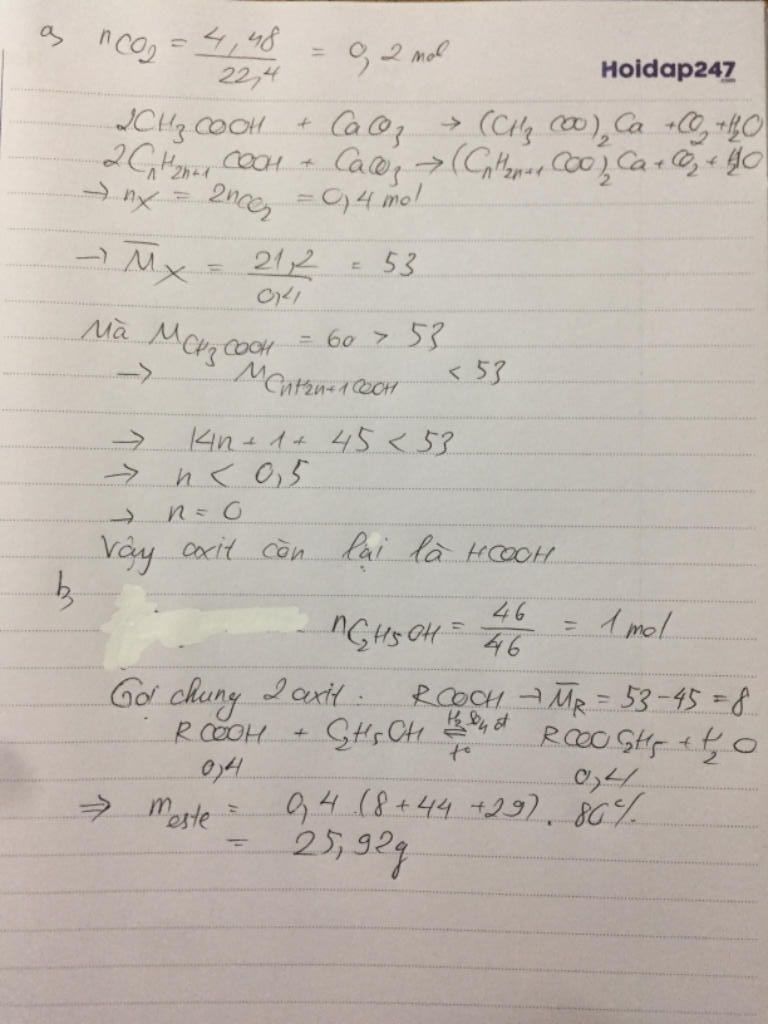 a, nCO2 = 4,48/22,4 = 0,2 mol
Hoidap247
2CH3COOH + CaCO3 → (CH3COO)2Ca + CO2 + H2O
2CnH2n+1COOH + CaCO3 → (CnH2n+1COO)2Ca + CO2 + H2O
→ nX = 2nCO2 = 0,4 mol
→ M̅X = 21,2/0,4 = 53
Mà MCH3COOH = 60 > 53
→ MCnH2n+1COOH < 53
→ 14n + 1 + 45 < 53
→ n < 0,5
→ n = 0
Vậy axit còn lại là HCOOH
b,
nC2H5OH = 46/46 = 1 mol
Gọi chung 2 axit : RCOOH → M̅R = 53 - 45 = 8
RCOOH + C2H5OH ⇌ H2SO4 đ t° RCOOC2H5 + H2O
0,4 0,4
⇒ meste = 0,4 . (8 + 44 + 29) . 80%
= 25,92g